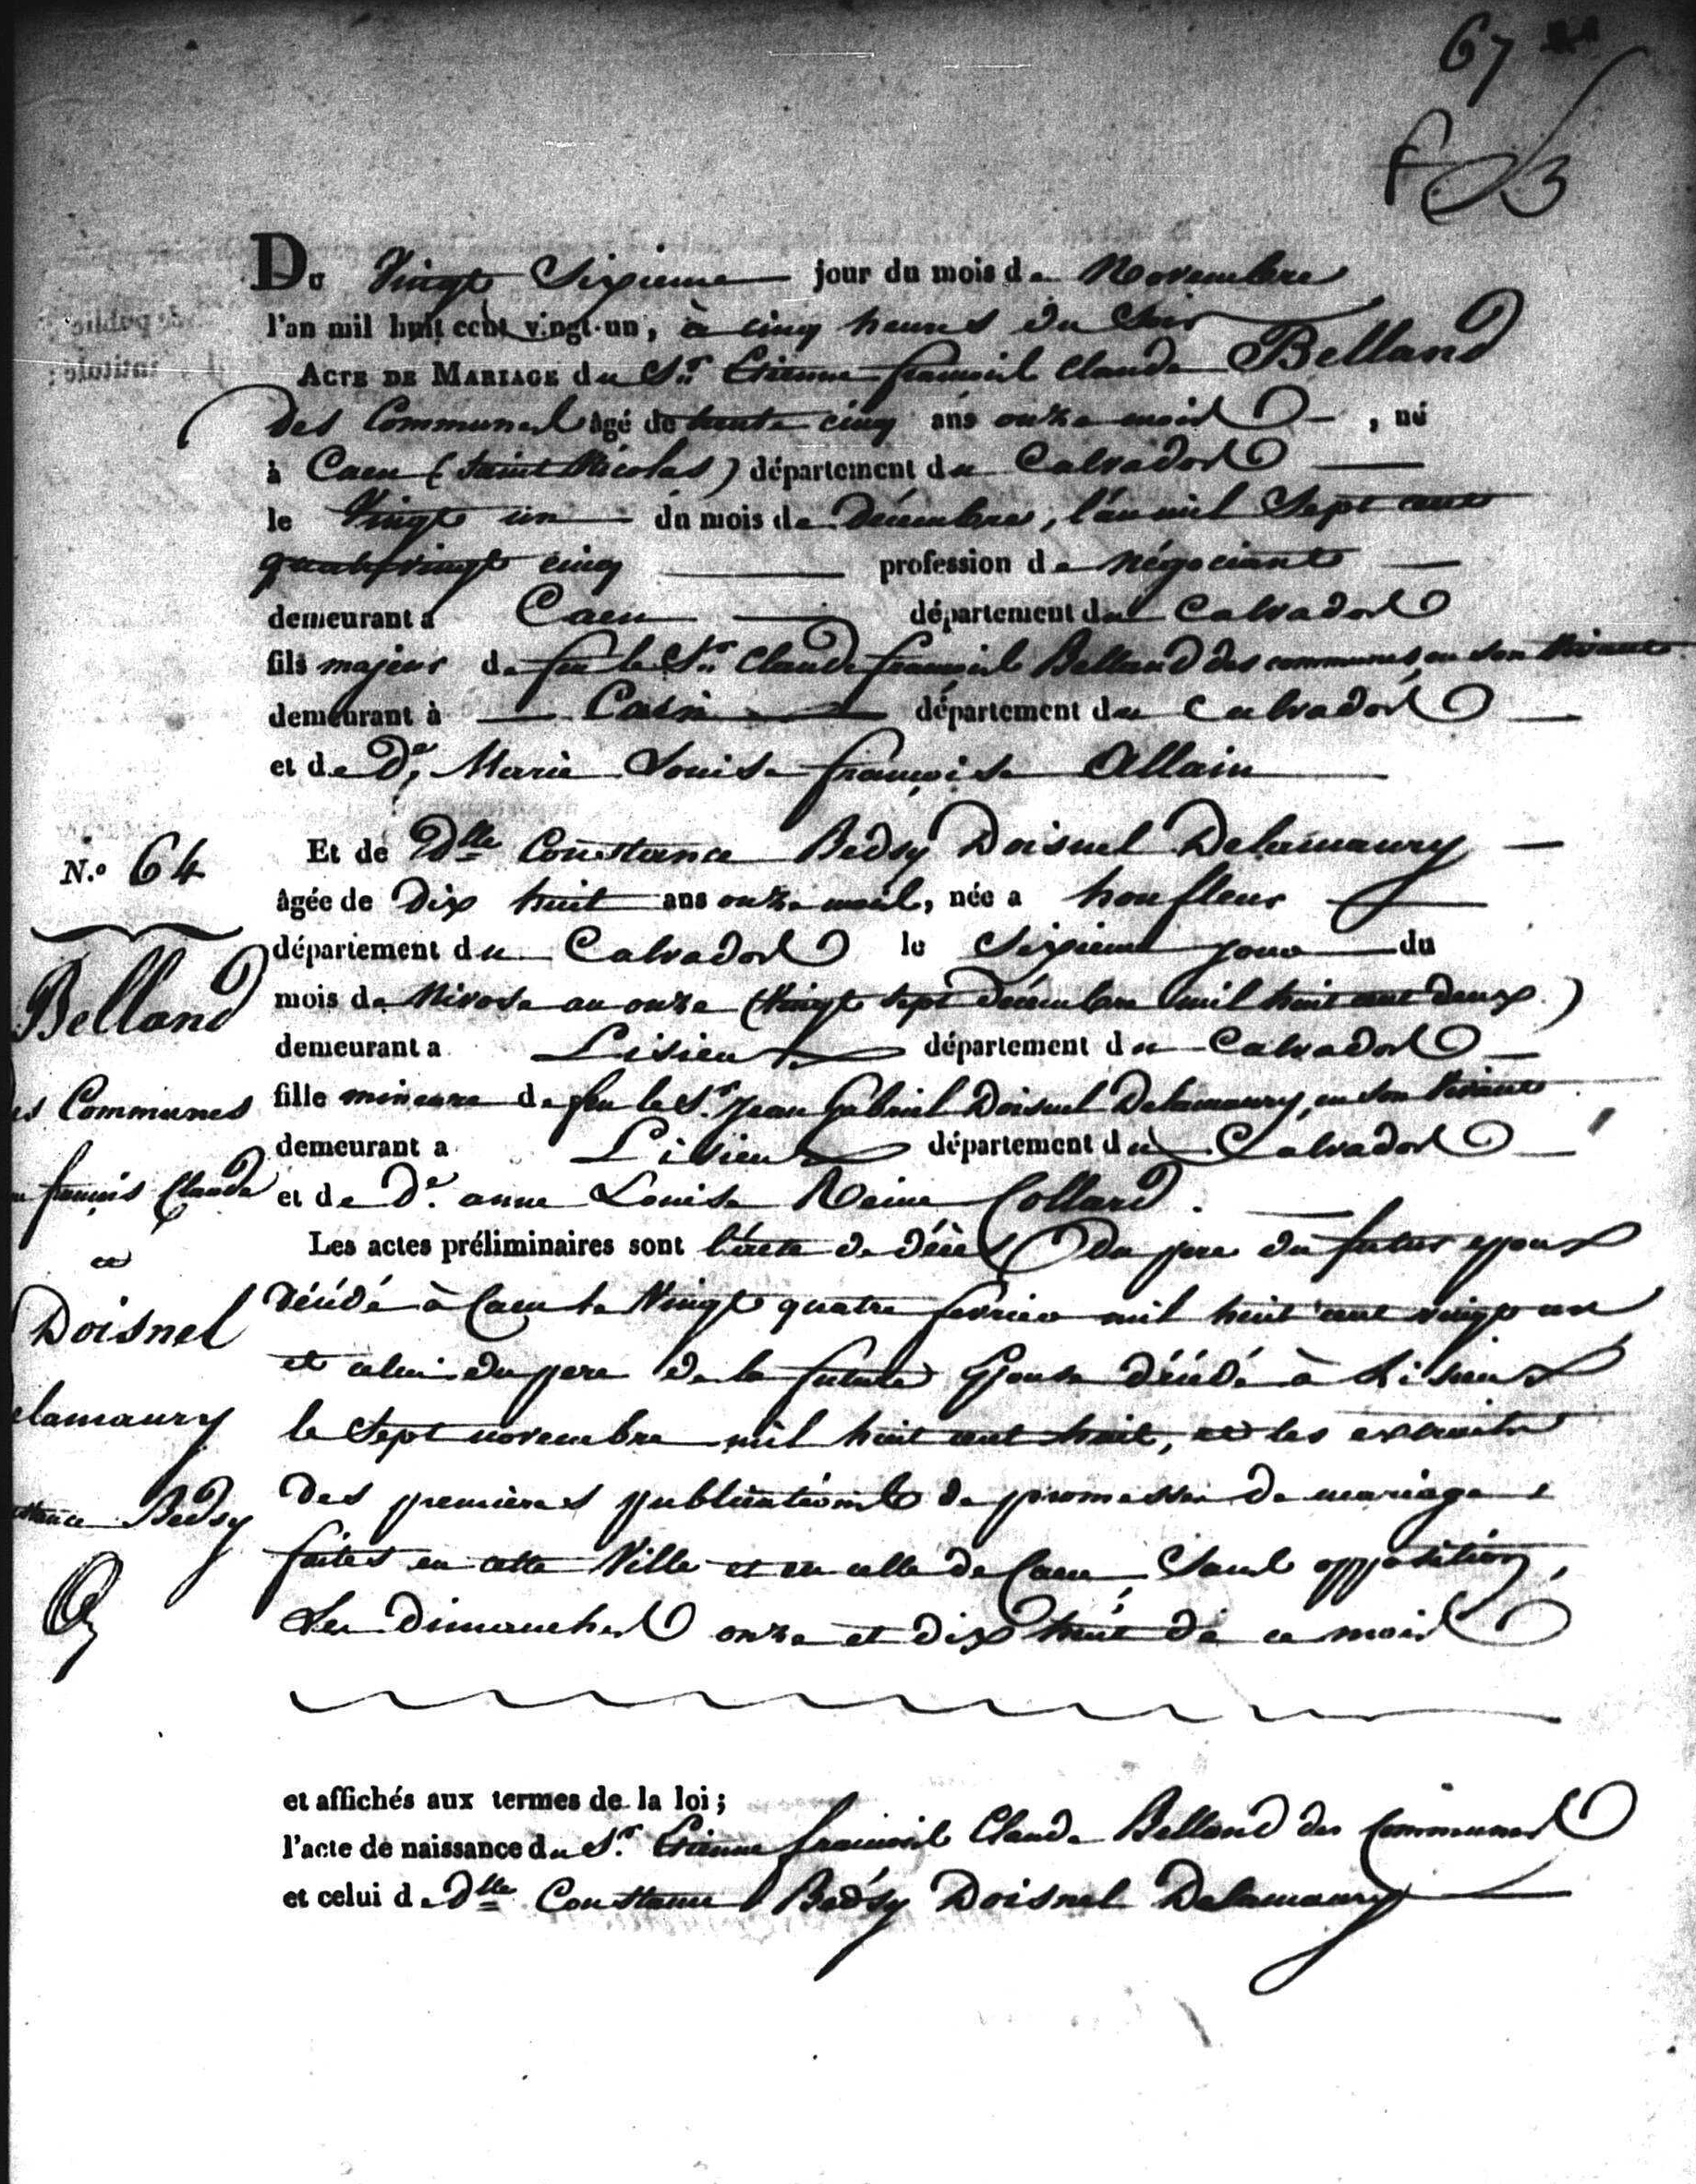 67
Du Vingt Sixieme jour du mois de Novembre
l'an mil huit cent vingt-un, à cinq heures du Soir
ACTE DE MARIAGE du Sr. Etienne françois Claude Belland
des Communes âgé de trente cinq ans onze mois, né
à Caen (Saint Nicolas) département du Calvados
le Vingt un du mois de décembre, l'an mil Sept cent
quatrevingt cinq profession de Négociant
demeurant à Caen département du Calvados
fils majeur de feu le Sr. Claude françois Belland des communes, en son Vivant
demeurant à Caen département du Calvados
et de De. Marie Louise françoise Allain
N.o 64
Et de Dlle Constance Bedsy Doisnel Delamaury
âgée de Dix huit ans onze mois, née a honfleur
département du Calvados le Sixieme jour du
mois de Nivose an onze (Vingt Sept décembre mil huit cent deux)
demeurant a Lisieux département du Calvados
fille mineure de feu le Sr. Jean Gabriel Doisnel Delamaury, en son Vivant
demeurant a Lisieux département du Calvados
et de De. anne Louise Reine Collard.
Les actes préliminaires sont l'acte de décès du pere du futur epoux
décédé à Caen le Vingt quatre fevrier mil huit cent vingt un
et celui du pere de la future Epouse décédé à Lisieux
le Sept novembre mil huit cent huit, et les extraits
des premieres publications de promesses de mariage
faites en cette Ville et en celle de Caen, Sans opposition,
Les Dimanches onze et dix huit de ce mois
et affichés aux termes de la loi;
l'acte de naissance du Sr. Etienne françois Claude Belland des Communes
et celui de Dlle Constance Bedsy Doisnel Delamaury
Belland
es Communes
françois Claude
et
Doisnel
elamaury
stance Bedsy